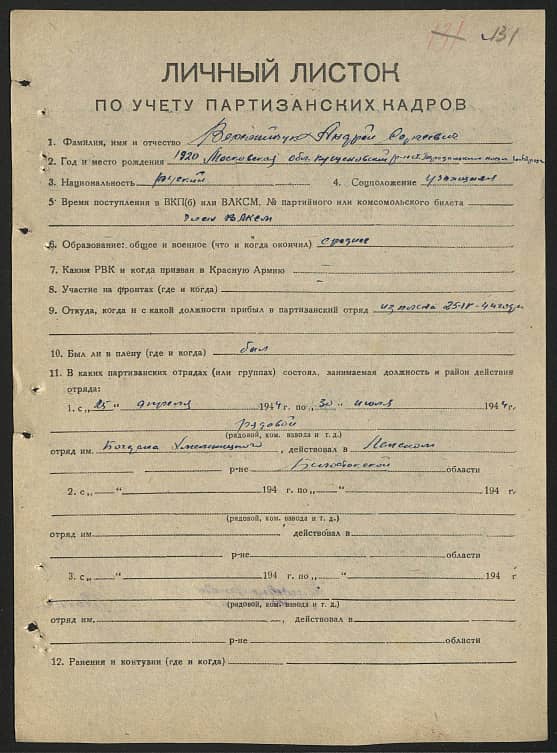 131 131
ЛИЧНЫЙ ЛИСТОК
ПО УЧЕТУ ПАРТИЗАНСКИХ КАДРОВ
1. Фамилия, имя и отчество Андрей Сергеевич
2. Год и место рождения 1920 Московская обл.
3. Национальность русский 4. Соцположение учащийся
5. Время поступления в ВКП(б) или ВЛКСМ, № партийного или комсомольского билета
Член ВЛКСМ
6. Образование: общее и военное (что и когда окончил) среднее
7. Каким РВК и когда призван в Красную Армию
8. Участие на фронтах (где и когда)
9. Откуда, когда и с какой должности прибыл в партизанский отряд из плена 25-IV-44 года
10. Был ли в плену (где и когда) был
11. В каких партизанских отрядах (или группах) состоял, занимаемая должность и район действия
отряда:
1. с „25" апреля 1944 г. по „30" июля 1944 г.
рядовой
(рядовой, ком. взвода и т. д.)
отряд им. Богдана Хмельницкого, действовал в
р-не Белостокской области
2. с „ " 194 г. по „ " 194 г.
(рядовой, ком. взвода и т. д.)
отряд им. действовал в
р-не области
3. с „ " 194 г. по „ " 194 г
(рядовой, ком. взвода и т. д.)
отряд им. , действовал в
р-не области
12. Ранения и контузии (где и когда)